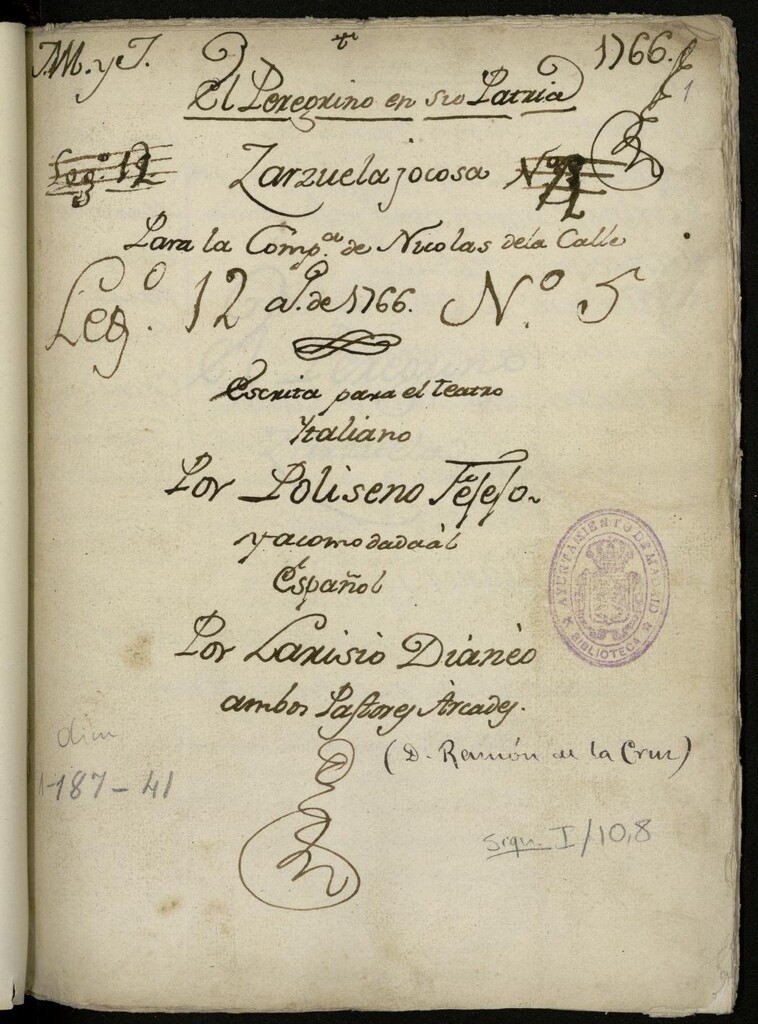 J.M. y J. 1766.
1
El Peregrino en su Patria
Leg.º 12 Zarzuela jocosa N.º
Para la Comp.ª de Nicolas de la Calle
Leg.º 12 a.º de 1766. N.º 5
Escrita para el teatro
Ytaliano
Por Poliseno Fejejo.
y acomodada al
Español
Por Larisio Dianeo
ambos Pastores Arcades.
(D. Ramón de la Cruz)
1-187-41
I/10,8
AYUNTAMIENTO DE MADRID
BIBLIOTECA